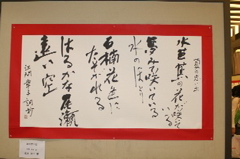 夏の思い出
水芭蕉の花が咲いている
夢みて咲いている
水のほとり
石楠花色に
たそがれる
はるかな尾瀬
遠い空
江間章子詞